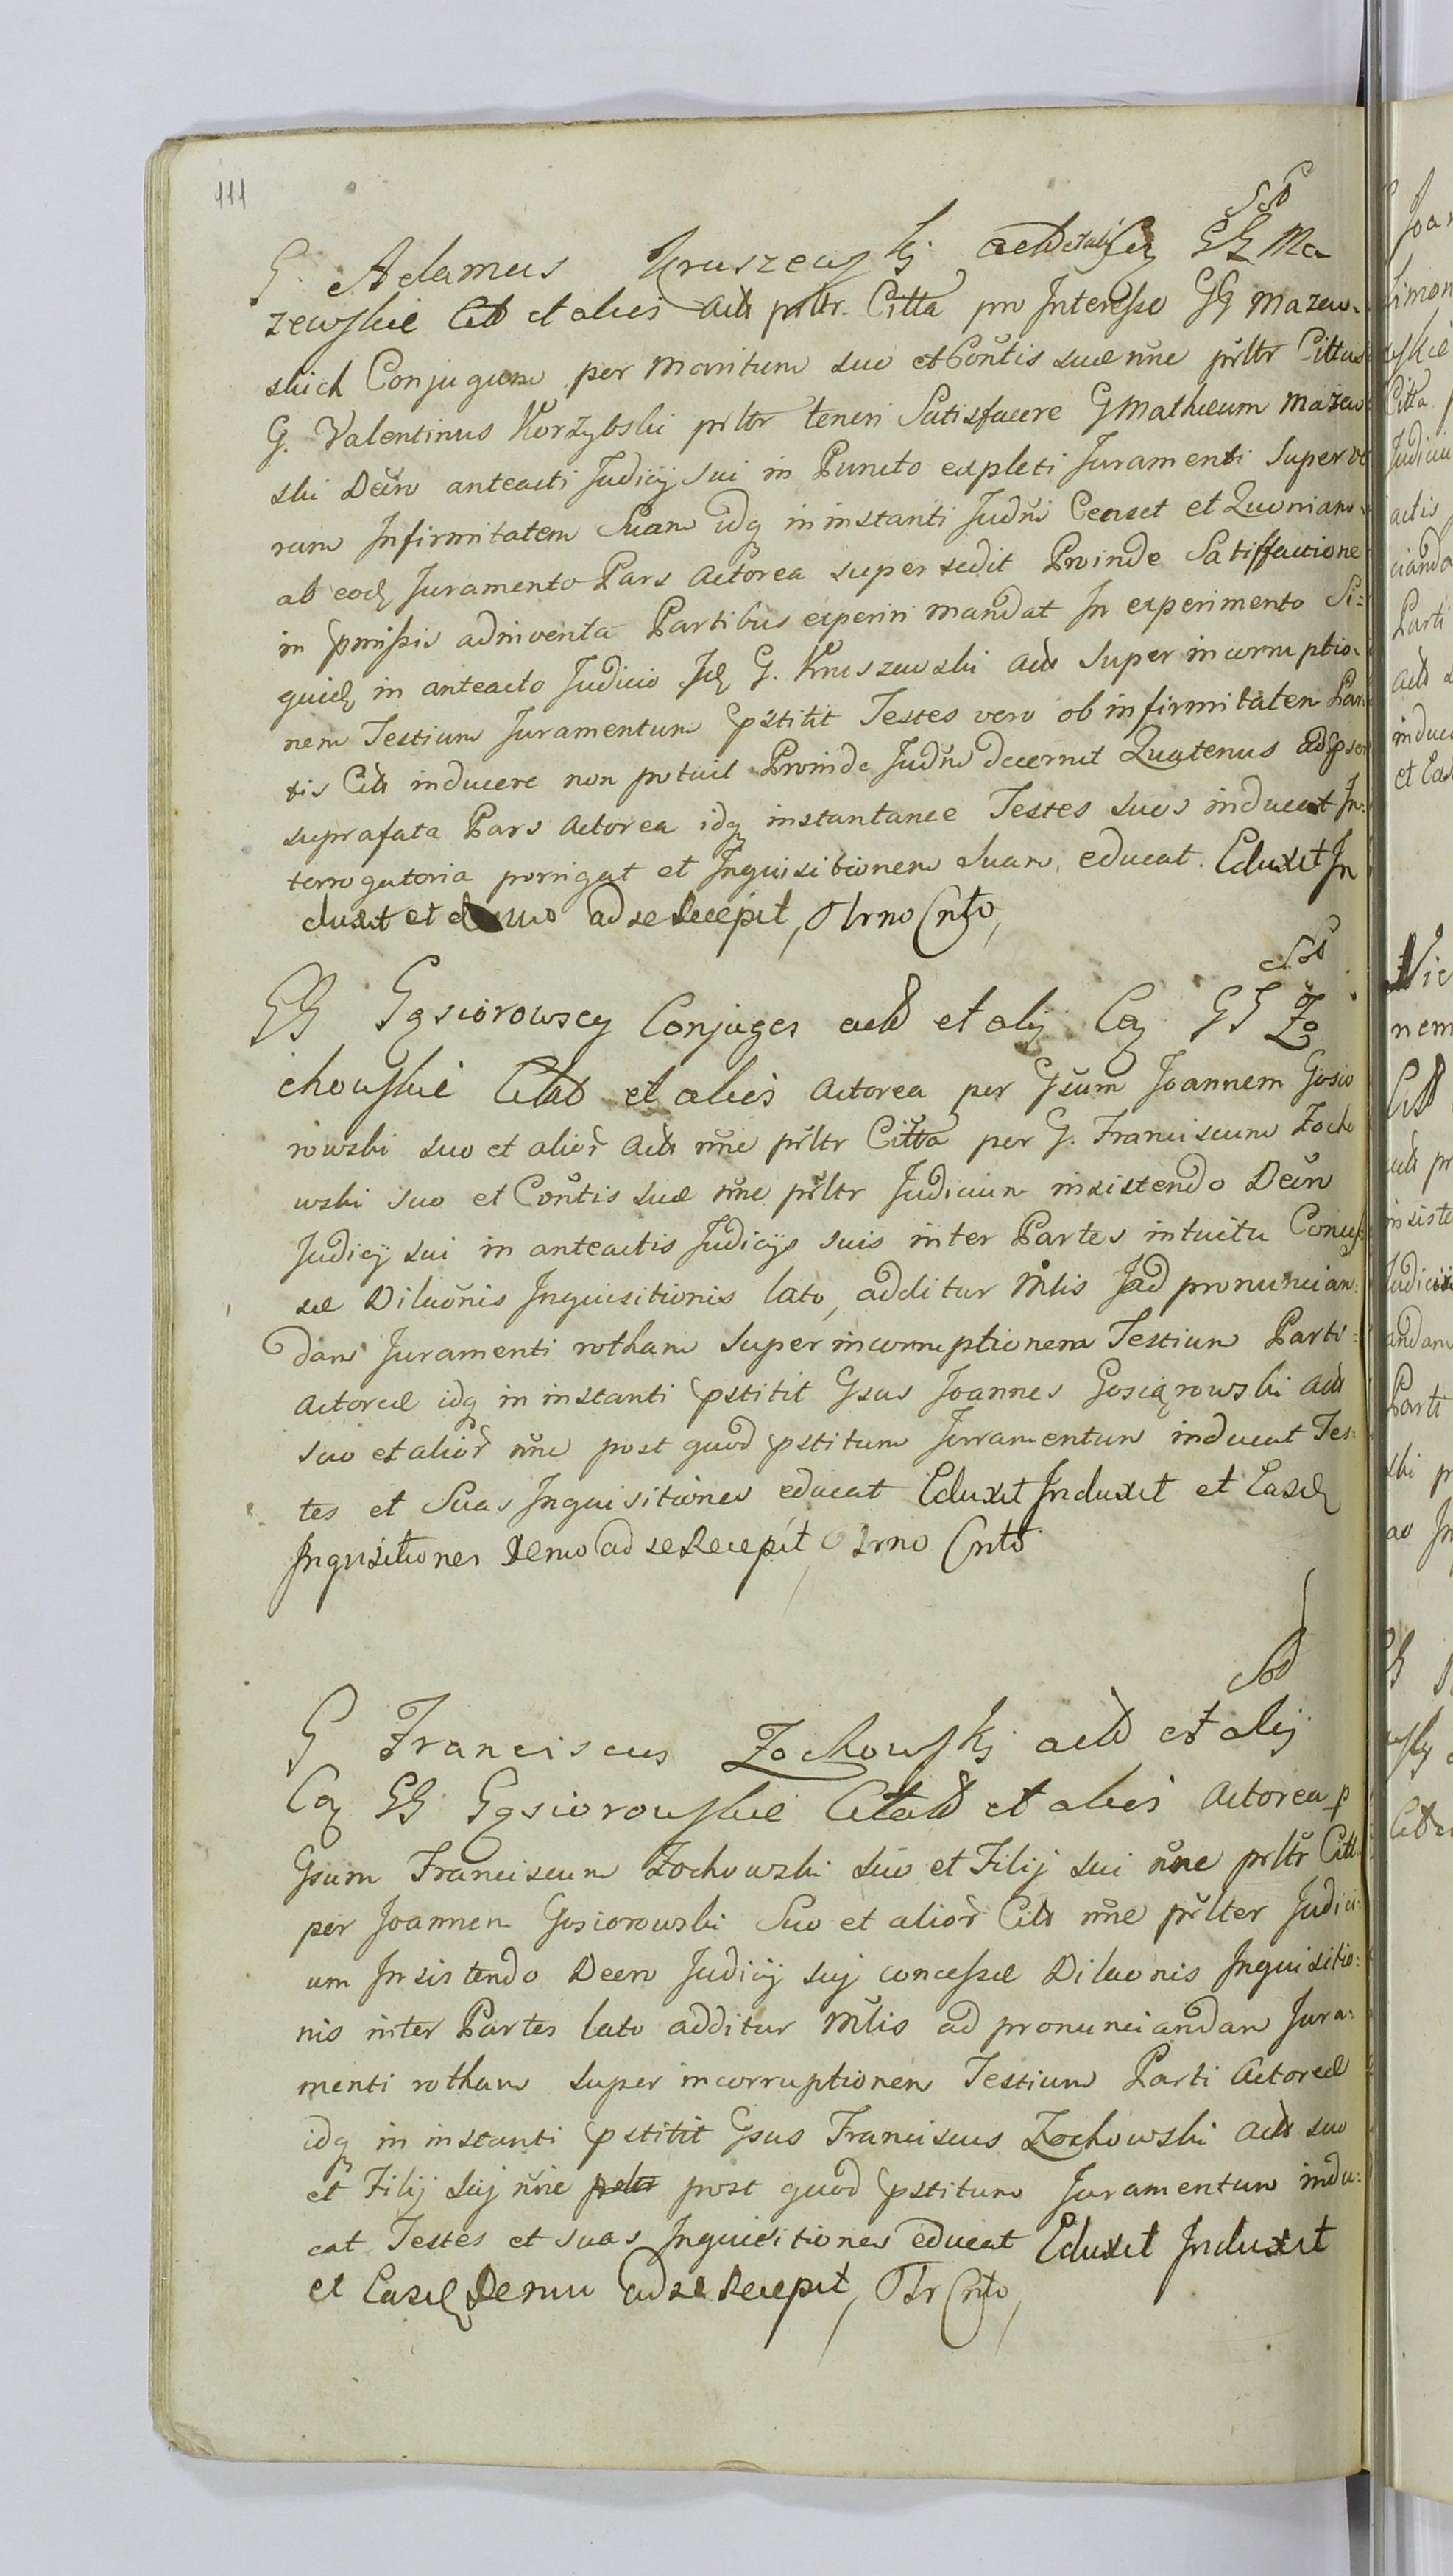 111
G. Adamus Kruszewskj actd et alij Cq GG Ma
zewskie Citt et alios Actt prltr. Citta pro Interesse GG Mazew-
skich Conjugum per Maritum suo et Cońtis suæ nñe prltr Cittus
G. Valentinus Korzybski prltr teneri Satisfacere G Mathæum Mazew
ski Decro anteacti Judicij sui in Puncto expleti Juramenti Super ve
ram Infirmitatem Suam idq in instanti Judm Censet et Quoniam
ab eod Juramento Pars Actorea supersedit Proinde Satisfactione
in pmissis adinventa Partibus experiri mandat In experimento Si=
quid in anteacto Judicio Id G. Kruszewski Actt Super incorruptio-
nem Testium Juramentum pstitit Testes vero ob infirmitatem Par
tis Citt inducere non potuit Proinde Judm decernit Quatenus adpsen
suprafata Pars Actorea idq instantanee Testes suos inducat In-
terrogatoria porrigat et Inquisitionem Suam educat. Eduxit In
duxit et denuo ad se Recepit,
GG Gąsiorowscy Conjuges actt et alij Cq GG Żo
chowskie Citat et alios Actorea per Gsum Joannem Gosio
rowski suo et alior Actt nñe prltr Citta per G. Franciscum Zocho
wski suo et Cońtis suæ nñe prltr Judicium insistendo Decro
Judicij sui in anteactis Judicijs suis inter Partes intuitu Concess
sæ Dilaõnis Inquisitionis lato, additur Mlis ad pronuncian-
dam Juramenti rotham Super incorruptionem Testium Parti=
Actoreæ idq in instanti pstitit Gsus Joannes Gosiąrowski Actt
suo et alior nñe post quod pstitum Jurramentum inducat Tes-
tes et Suas Inquisitiones educat Eduxit Induxit et Easd
Inquisitiones Denuo ad se Recepit,
G Franciscus Zochowskj actt et alij
Cq GG Gąsiorowskie Citatt et alios Actorea p
Gsum Franciscum Zochowski suo et Filij sui nñe prltr Citt
per Joannem Gosiorowski Suo et alior Citt nñe prlter Judici-
um Insistendo Decro Judicij suj concessæ Dilaonis Inquisitio-
nis inter Partes lato additur Mlis ad pronunciandam Jura-
menti rotham super incorruptionem Testium Parti Actoreæ
idq in instanti pstitit Gsus Franciscus Zochowski Actt suo
et Filij suj nñe post quod pstitum Juramentum indu-
cat Testes et suas Inquisitiones educat Eduxit Induxit
et Easd Denuo ad se Recepit,